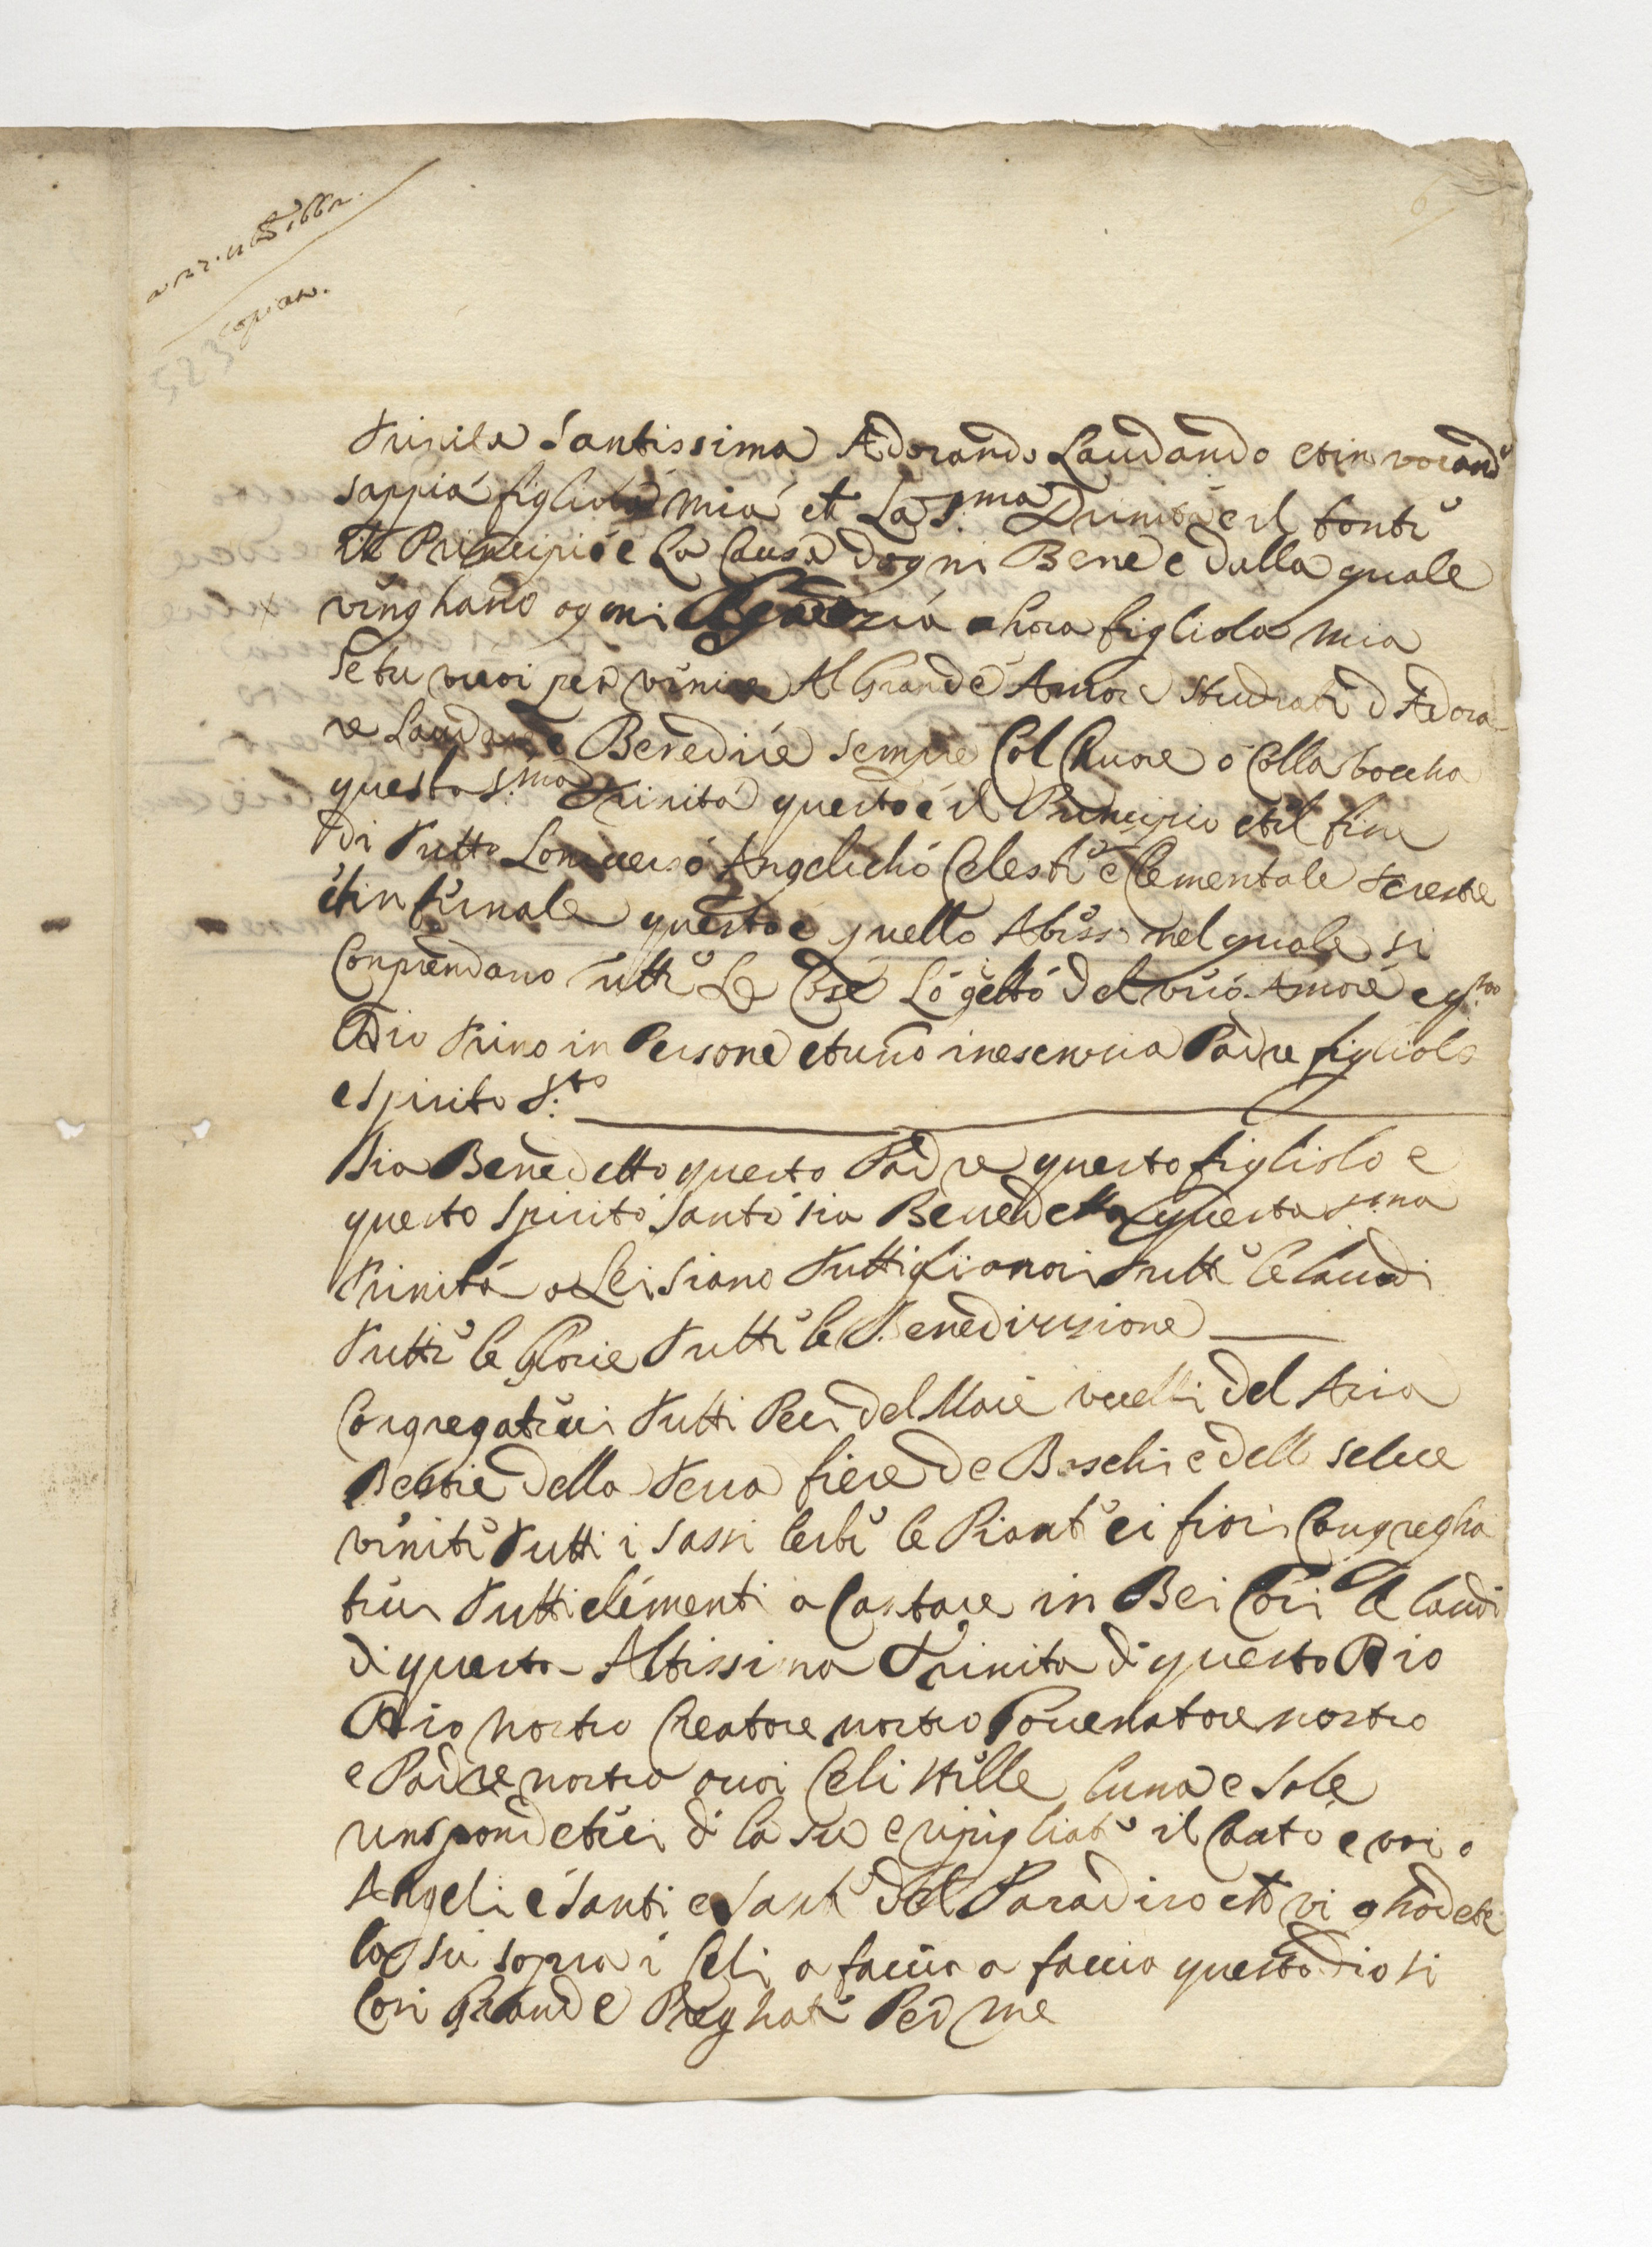 copiata.
523
6
Trinita Santissima Adorando Laudando et in vocand
sappia figliola mia che La S.ma Trinita e il fonte
il Principio e La Causa dogni Bene e dalla quale
venghano ogni Grazia hora figliola mia
se tu vuoi per venire Al Grande Amore studiati d Adora
re Laudare e Benedire sempre Col Cuore o Colla boccha
questa S.ma Trinita questo e il Principio et il fine
di Tutto Loniverso Angelicho Celeste e Clementale Tereste
et in fernale questo e quello Abisso nel quale si
Conprendano tutte Le Cose Logetto del vero Amore e q.sto
Dio Trino in Persone et uno in esenzia Padre figliolo
e spirito S.to
Sia Benedetto questo Padre questo figliolo e
questo Spirito Santo sia Benedetta questa S.ma
Trinita a Lei siano Tutti gli onori Tutte le laudi
Tutte le glorie Tutte le Benedizzione
Congregatevi Tutti Pesi del Mare ucelli del Aria
Bestie della Terra fiere de Boschi e delle selve
venite Tutti i sassi lerbe le Piante ei fiori Congregha
tevi Tutti elementi a Cantare in Bei Cori le laudi
di questa Altissima Trinita di questo Dio
Dio nostro Creatore nostro Governatore nostro
e Padre nostro o voi Celi stelle luna e sole
rinspondetevi di la su e ripigliate il Cato e voi o
Angeli e santi e sante del Paradiso che vi ghodete
la su sopra i Celi a faccia a faccia questo dio si
Cosi Grande Preghate Per me